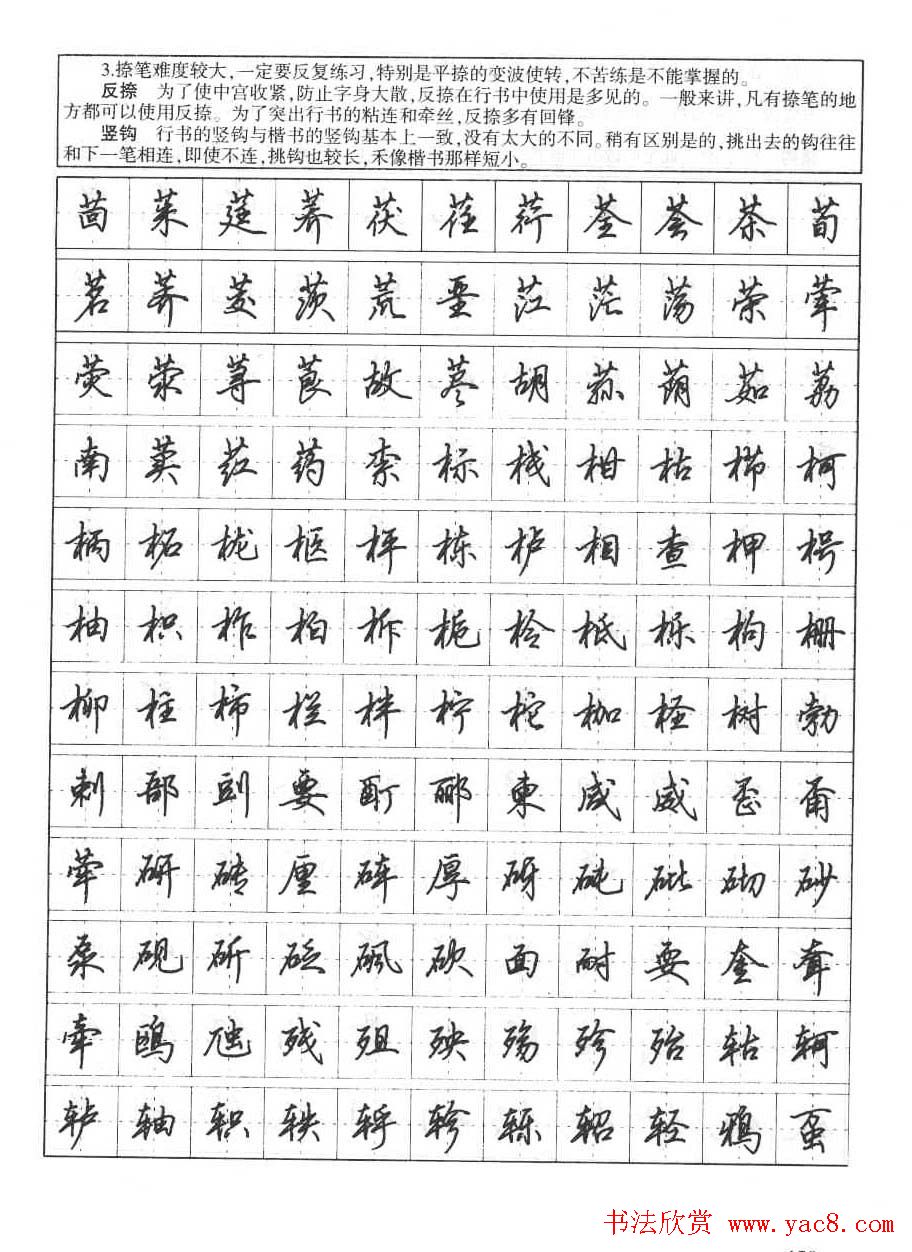 3.捺笔难度较大,一定要反复练习,特别是平捺的变波使转,不苦练是不能掌握的。
反捺 为了使中宫收紧,防止字身大散,反捺在行书中使用是多见的。一般来讲,凡有捺笔的地
方都可以使用反捺。为了突出行书的粘连和牵丝,反捺多有回锋。
竖钩 行书的竖钩与楷书的竖钩基本上一致,没有太大的不同。稍有区别是的,挑出去的钩往往
和下一笔相连,即使不连,挑钩也较长,禾像楷书那样短小。
茴 茱 莛 荞 茯 荏 荇 荃 荟 茶 荀
茗 荞 茭 茨 荒 垩 茳 茫 荡 荣 荤
荧 荥 荨 茛 故 荩 胡 荪 荫 茹 荔
南 荬 荭 药 柰 标 栈 柑 枯 栉 柯
柄 柘 栊 柩 枰 栋 栌 相 查 柙 枵
柚 枳 柞 柏 柝 栀 柃 柢 栎 枸 栅
柳 柱 柿 栏 柈 柠 柁 枷 柽 树 勃
剌 郚 剅 要 酊 郦 柬 咸 威 歪 甭
荤 研 砖 厘 砗 厚 砑 砘 砒 砌 砂
泵 砚 斫 砭 砜 砍 面 耐 耍 奎 耷
牵 鸥 虺 残 殂 殃 殇 殄 殆 轱 轲
轳 轴 轵 轶 轷 轸 轹 轺 轻 鸦 虿
书法欣赏 www.yac8.com